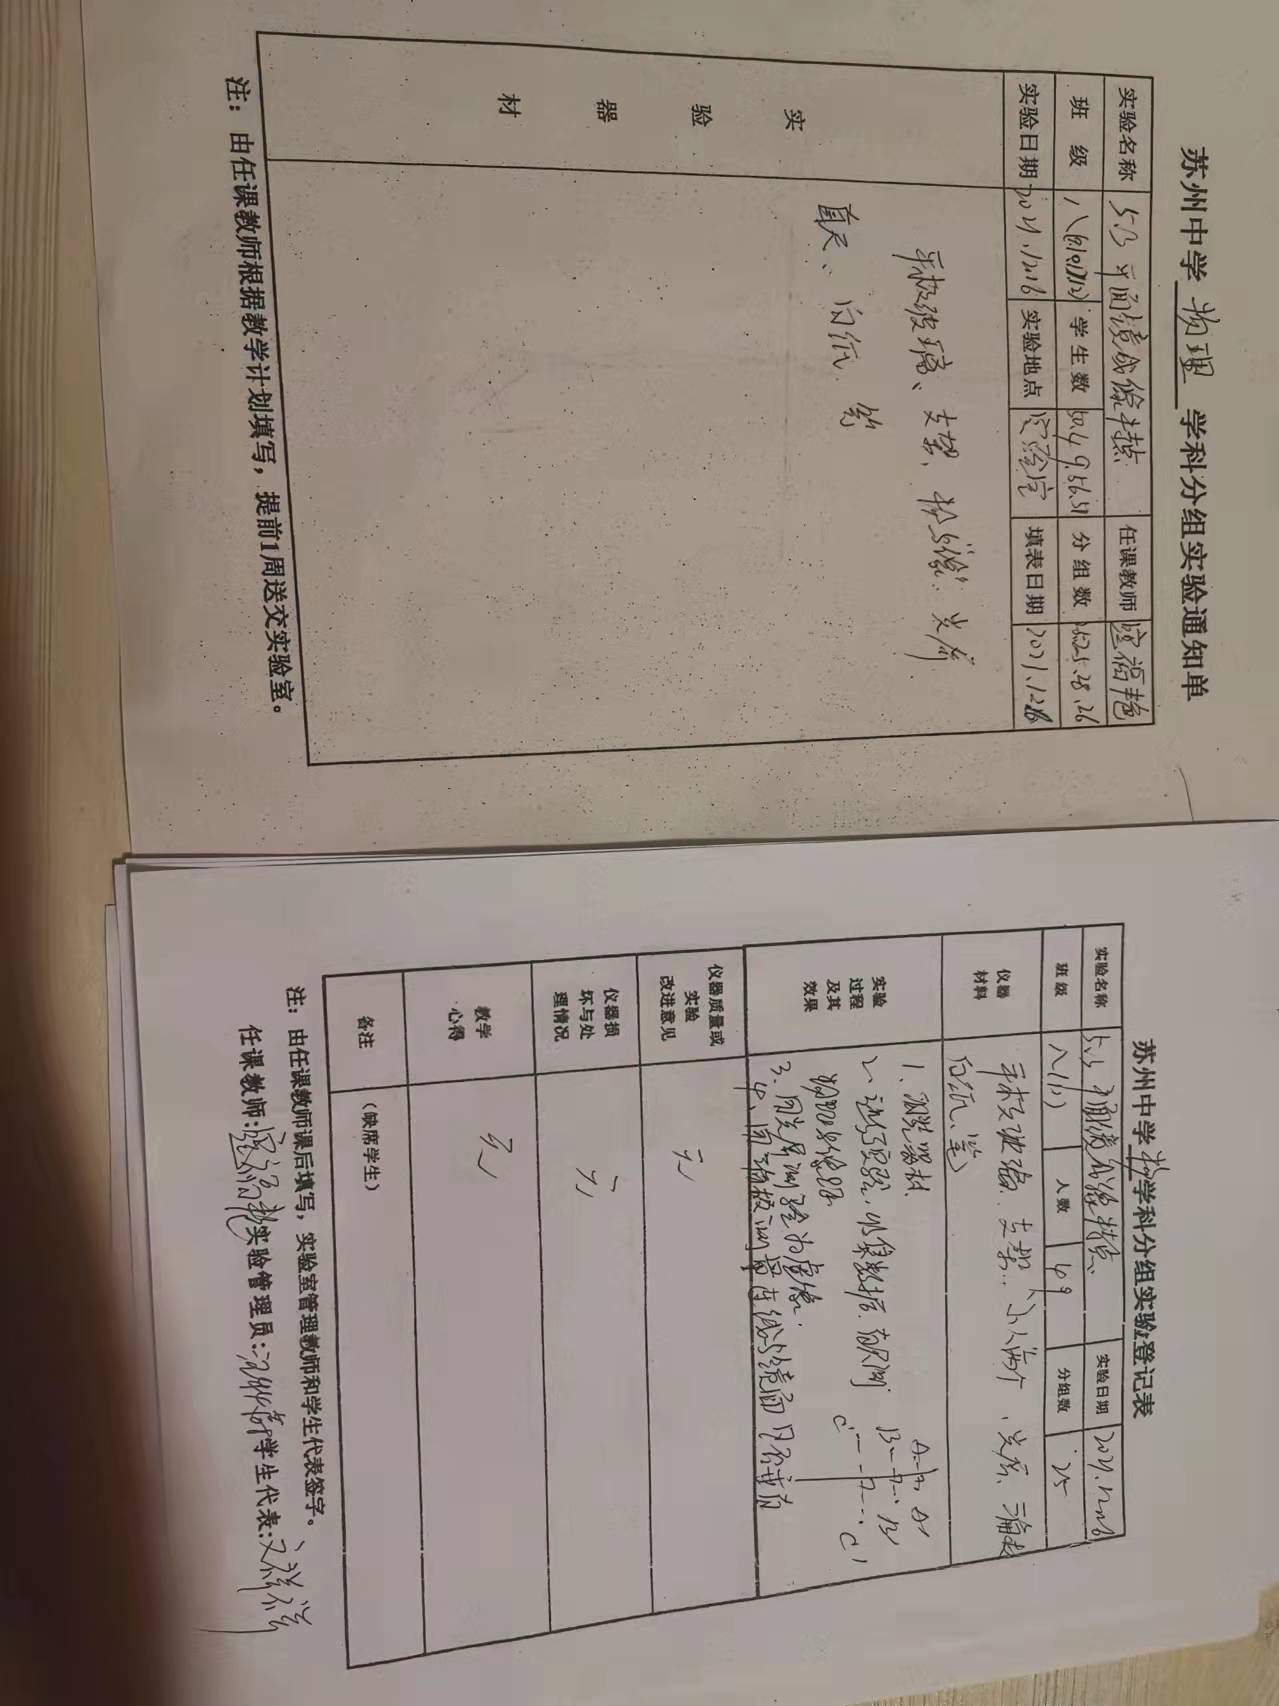 苏州中学 物理 学科分组实验通知单
实验名称 5.3 平面镜成像特点 任课教师
班 级 学生数 50.49.56.51 分组数 25.25.28.26
实验日期 2021.12.16 实验地点 实验室 填表日期 2021.12.6
实验器材
平板玻璃、支架、光屏
直尺、白纸、笔
注：由任课教师根据教学计划填写，提前1周送交实验室。
苏州中学 物 学科分组实验登记表
实验名称 5.3 平面镜成像特点 实验日期 2021.12.16
班 级 人数 49 分组数 25
仪器材料
平板玻璃、支架、小人俩个、光屏、三角板
白纸、笔
实验过程及其效果
1、器材.
2、进行实验，收集数据.
3、用光屏测验为虚像.
4、用三角板测量连线与镜面是否垂直
A A'
B B'
C C'
仪器质量或实验改进意见 无
仪器损坏与处理情况 无
教学心得 无
备注 (缺席学生)
注：由任课教师课后填写，实验室管理教师和学生代表签字。
任课教师: 实验管理员: 学生代表: